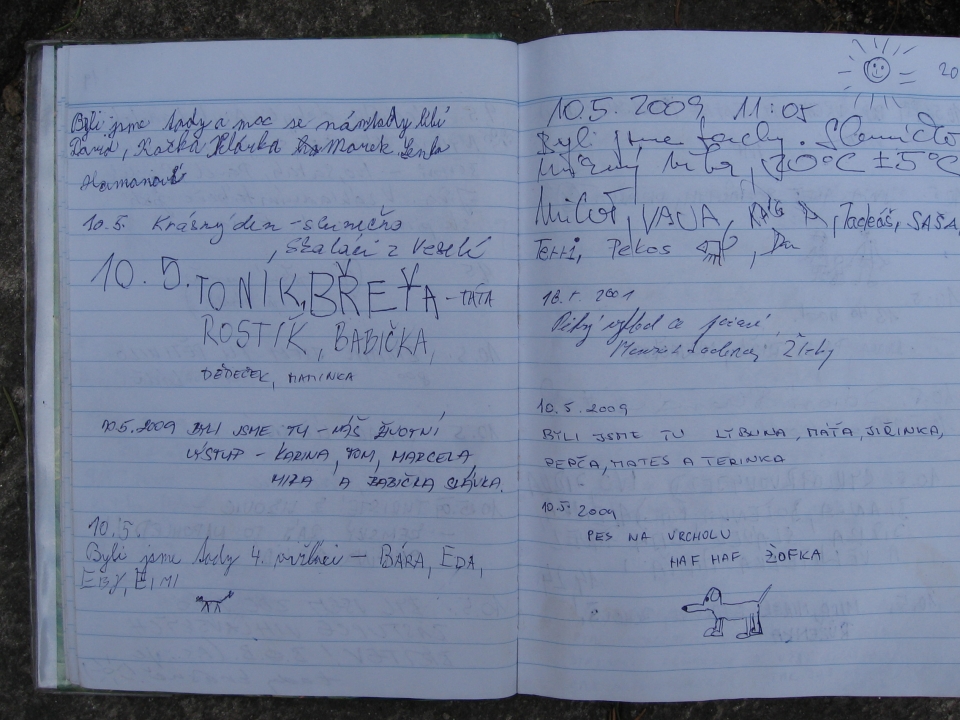 Byli jsme tady a moc se nám tady líbí
David, Katka Klárka Marek Lenka
10.5. Krásný den - slunečno
, Skaláci z Veselí
10.5. TONÍK, BŘEŤA - TÁTA
ROSTÍK, BABIČKA,
DĚDEČEK, MAMINKA
10.5.2009 BYLI JSME TU - NÁŠ ŽIVOTNÍ
VÝSTUP - KARINA, TOM, MARCELA,
MIRA A BABIČKA SLÁVKA.
10.5.
Byli jsme tady 4. - BÁRA, EDA,
EBY, EIMI
20
10.5. 2009 11:05
Byli jsme tady. Sluníčko
mírný vítr, 20°C ±5°C
Miloš, VAŠA, KÁČA, Tadeáš, SAŠA,
Terri, Pekos
18.5. 2001
Pěkný výhled a počasí,
10.5.2009
BYLI JSME TU LIBUNA, MÁŤA, JIŘINKA,
PEPČA, MATES A TERINKA
10.5. 2009
PES NA VRCHOLU
HAF HAF ŽOFKA